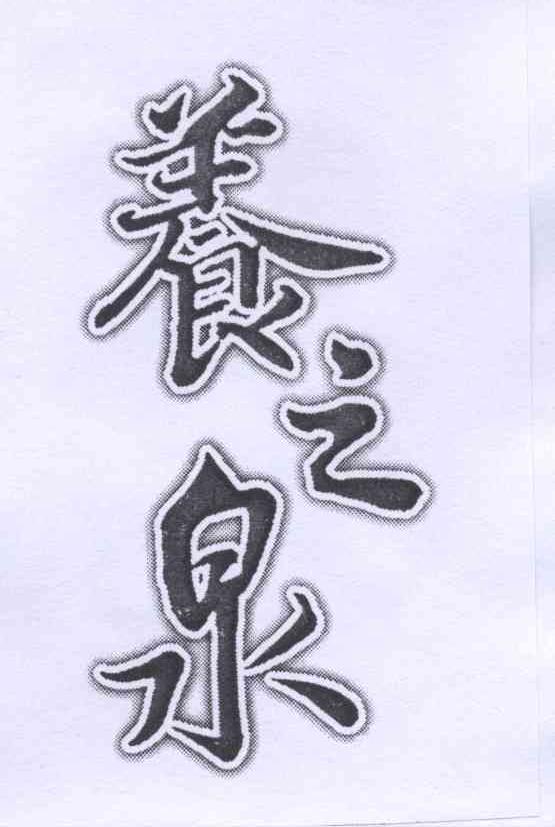 養之泉